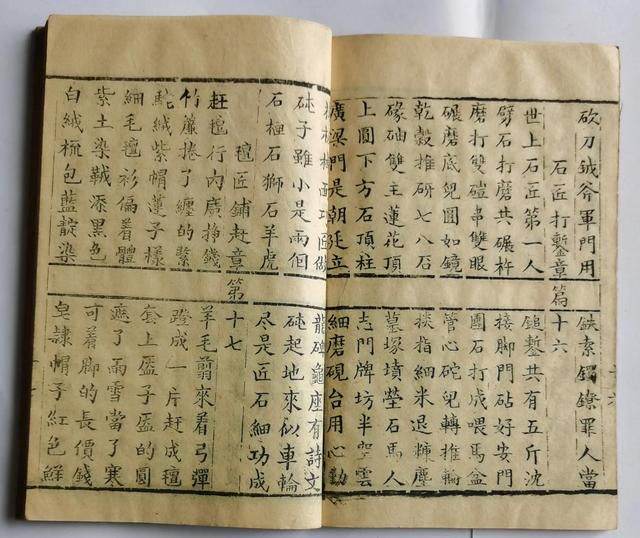 砍刀鉞斧軍門用 鉄索鐲鐐罪人當
石匠打鏨章篇十六
世上石匠第一人 鎚鏨共有五斤沈
劈石打磨共碾杵 接脚門砧好安門
磨打雙磑串雙眼 圑石打成喂馬盆
碾磨底兒圓如鏡 管心砣兒轉推輪
乾穀推研七八石 掞指細米退糠塵
雙主蓮花頂 墓塚墳塋石馬人
上圓下方石頂柱 志門牌坊半空雲
廣梁門是朝廷立 細磨硯台用心勤
龍碰龜座有詩文
砘子雖小是兩個 砘起地來似車輪
石槽石獅石羊虎 尽是匠石細功成
氊匠鋪赶章第十七
赶氊行內廣掙錢 羊毛剪來着弓彈
竹簾捲了纏的緊 蹬成一片赶成氊
駝絨紫帽蓬子樣 套上盔子盔的圓
細毛氊衫偏着體 遮了雨雪當了寒
紫土染靴添黑色 可着脚的長價錢
白絨梳包藍靛染 皂隷帽子紅色鮮